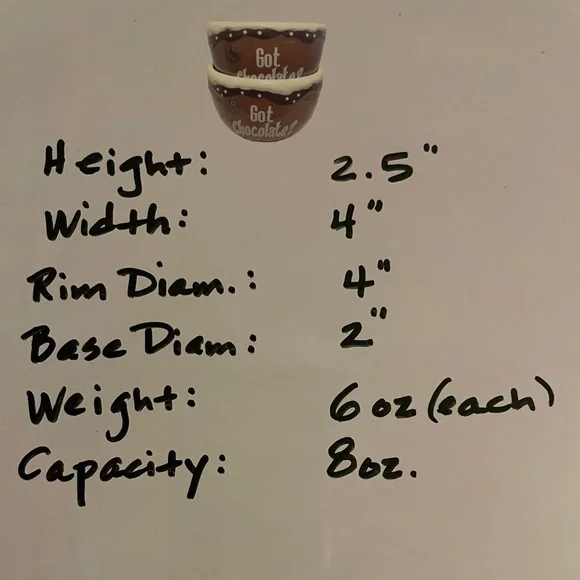 Got
chocolate?
Got
chocolate?
Height: 2.5"
Width: 4"
Rim Diam.: 4"
Base Diam: 2"
Weight: 6 oz (each)
Capacity: 8oz.